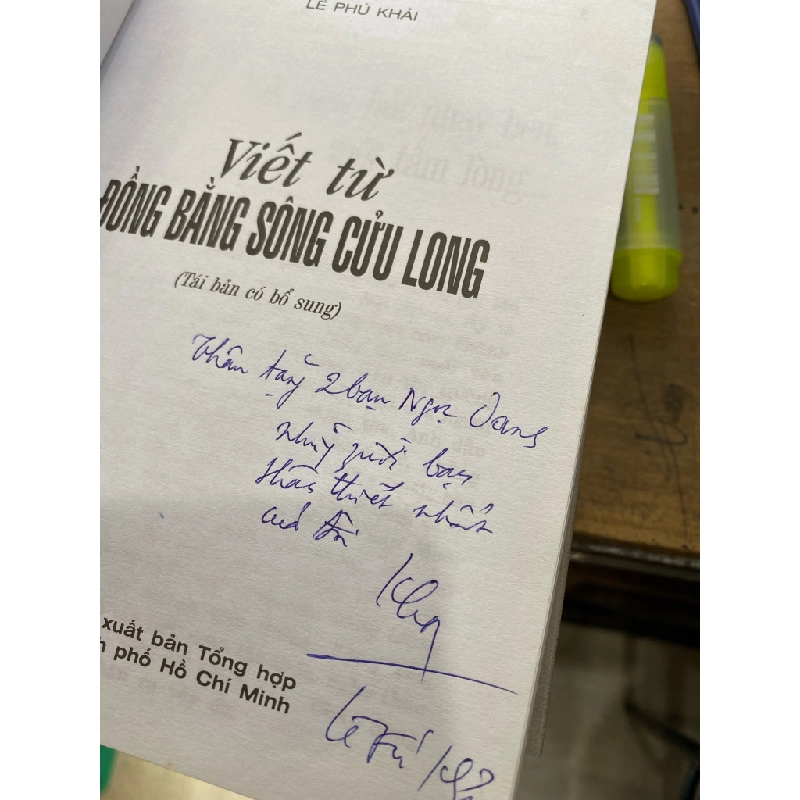 LÊ PHÚ KHẢI
Viết từ
ĐỒNG BẰNG SÔNG CỬU LONG
(Tái bản có bổ sung)
Thân tặng 2 bạn Ngọc Oanh
những người bạn
thân thiết nhất
của tôi
xuất bản Tổng hợp
phố Hồ Chí Minh
Lê Phú Khải